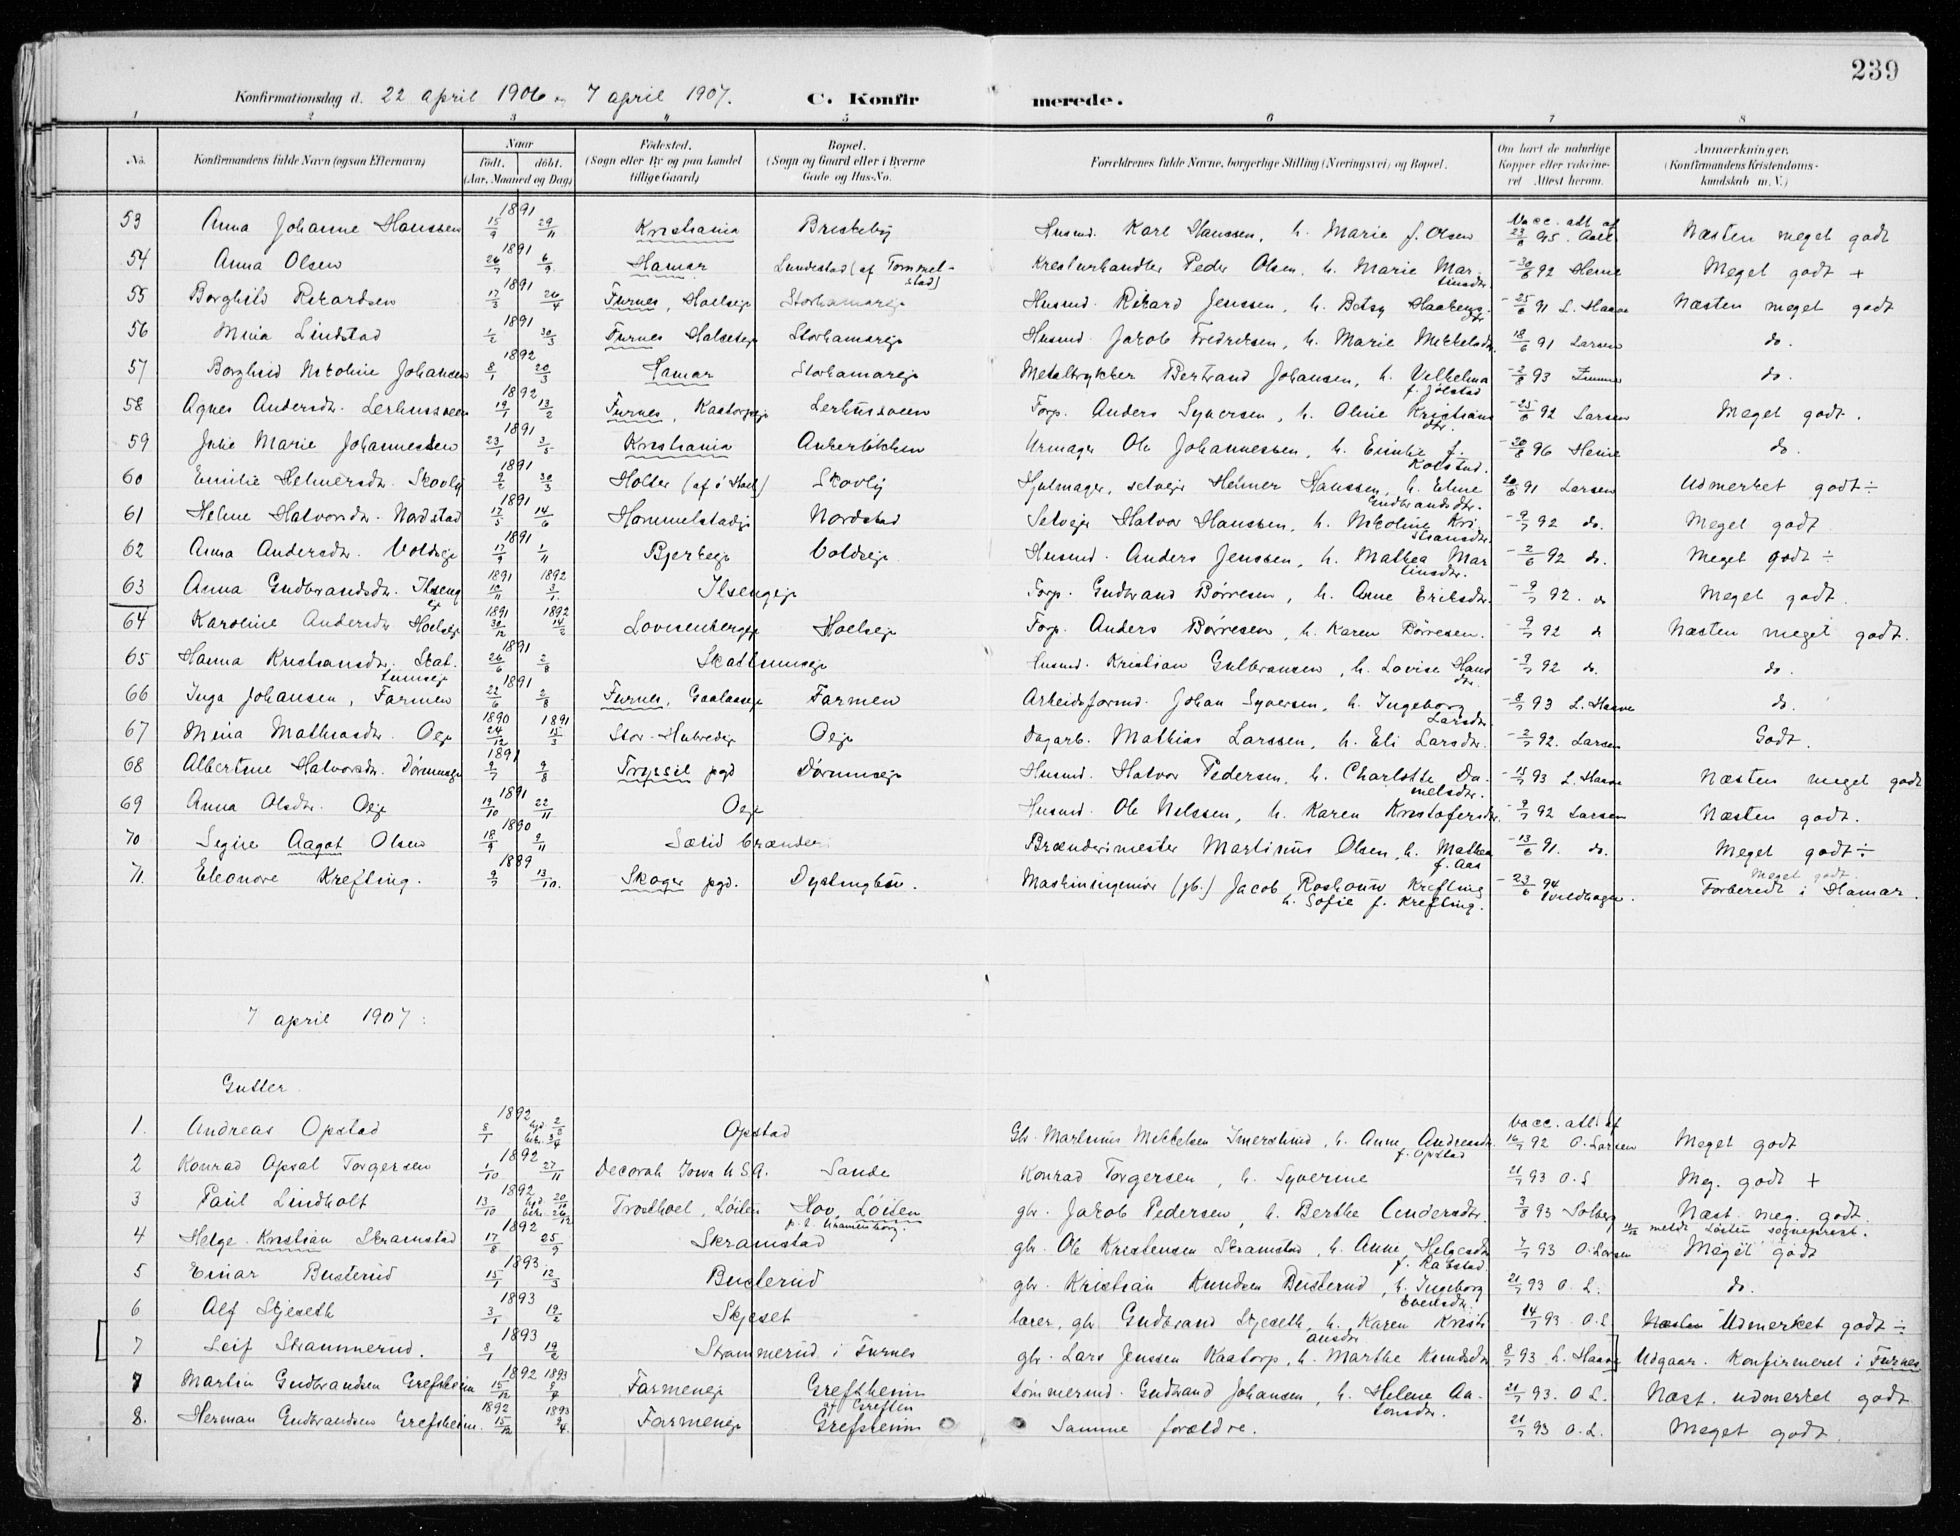 239
Konfirmationsdag d. 22 april 1906 og 7 april 1907. C. Konfirmerede.
1 2 3 4 5 6 7 8
No. Konfirmandens fulde Navn (ogsaa Efternavn) Naar födt. döbt. (Aar, Maaned og Dag) Födested. (Sogn eller By og paa Landet tillige Gaard) Bopæl. (Sogn og Gaard eller i Byerne Gade og Hus-No. Forældrenes fulde Navne, borgerlige Stilling (Næringsvei) og Bopæl. Om havt de naturlige Kopper eller vakcineret. Attest herom. Anmærkninger. (Konfirmandens Kristendomskundskab m. V.)
53 Anna Johanne Hanssen 1891 15/9 29/11 Kristiania Briskeby Husmd. Karl Hanssen, h. Marie f. Olsen Vacc. att. af 23/8 95. Næsten meget godt
54 Anna Olsen 1891 26/7 6/9 Hamar Lundestad (af Tommelstad) Kreaturhandler Peder Olsen, h. Marie Martinsdtr. 30/6 92 Meget godt +
55 Borghild Rikardsen 1891 17/3 26/4 Furnes, Hoelseje Storhamareje Husmd. Rikard Jenssen, h. Betsy 25/6 91 L. Haave Næsten meget godt
56 Mina Lindstad 1891 1/2 30/3 Furnes Storhamareje Husmd. Jakob Fredriksen, h. Marie Mikkelsdtr. 18/6 91 Larsen do.
57 Borghild Nikoline Johansen 1892 8/1 20/3 Hamar Storhamareje Metaltrykker Bertrand Johansen, h. Vilhelma f. Jølstad 2/8 93 do.
58 Agnes Andersdtr. Lerhussveen 1892 19/1 13/2 Furnes, Kaatorpeje Lerhussveen Forp. Anders Syversen, h. Oline Kristiansdtr. 25/6 92 Larsen Meget godt.
59 Julie Marie Johannessen 1891 23/1 3/5 Kristiania Ankerløkken Urmager Ole Johannessen, h. Emilie f. Kolstad. 20/8 96 do.
60 Emilie Helmersdtr. Skovly 1891 9/2 30/3 Holter Skovly Hjulmager, selvejr Helmer Hanssen, h. Eline Gudbrandsdtr. 20/6 91 Larsen Udmerket godt ÷
61 Helene Halvorsdtr. Nordstad 1891 17/5 14/6 Hommelstadeje Nordstad Selvejr Halvor Hanssen, h. Nikoline Kristiansdtr. 9/7 92 do. Meget godt
62 Anna Andersdtr. Voldseje 1891 17/9 1/11 Bjerkeeje Voldseje Husmd. Anders Jenssen, h. Mathea Martinsdtr. 2/6 92 do. Meget godt ÷
63 Anna Gudbrandsdtr. Ilsengeje 1891 10/11 1892 3/1 Ilsengeje Forp. Gudbrand Børresen, h. Anne Eriksdtr. 9/7 92. do Meget godt.
64 Karoline Andersdtr. Hoelseje 1891 30/12 1892 14/2 Lovisenbergeje Hoelseje Forp. Anders Børresen, h. Karen Børresen. 9/7 92 do Næsten meget godt.
65 Hanna Kristiansdtr. Skattumseje 1891 26/6 2/8 Skattumseje Husmd. Kristian Gulbransen, h. Lovise Hansdtr. 9/7 92 do. do.
66 Inga Johansen, Farmen 1891 22/6 2/8 Furnes, Gaalaaseje Farmen Arbeidsformd. Johan Syversen, h. Ingeborg Larsdtr. 8/7 93 L. Haave do.
67 Mina Mathiasdtr. Oeje 1890 24/12 1891 15/3 Stor-Hubredeje Oeje Dagarb. Mathias Larssen, h. Eli Larsdtr. 2/7 92. Larsen Godt.
68 Albertine Halvorsdtr. Dørumseje 1891 9/7 9/8 Tryssil pgd Dørumseje Husmd. Halvor Pedersen, h. Charlotte Danielsdtr. 15/7 93 L. Haave Næsten meget godt
69 Anna Olsdtr. Oeje 1891 19/10 22/11 Oeje Husmd. Ole Nilssen, h. Karen Kristofersdtr. 9/7 92 Larsen Næsten godt.
70 Signe Aagot Olsen 1890 18/9 9/11 Sælid brænderi Brænderimester Martinus Olsen, h. Mathea f. Aas 13/6 91. do. Meget godt ÷
71. Eleonore Krefting. 1889 9/7 13/10. Skoger pgd. Dystingbo. Maskiningeniør (gb.) Jacob Krefting h. Sofie f. Krefting. 23/6 94 Meget godt. Forberedt i Hamar.
7 april 1907:
Gutter.
1. Andreas Opstad 1892 8/1 hjd. 2/2 bekr. 3/4 Opstad Gbr. Martinus Mikkelsen Imerslund, h. Anne Andreasdtr. f. Opstad Vacc. att. af 16/7 92 O. Larsen Meget godt
2 Konrad Opsal Torgersen 1892 1/10 27/11 Decorah Iowa U.S.A. Sande Konrad Torgersen, h. Syverine 21/7 93 O. L Meg. godt +
3 Paul Lindholt 1892 13/10 hjd. 20/10 bekr. 26/12 Trosthoel, Løiten Hov, Løiten gbr. Jakob Pedersen, h. Berthe Andersdtr. 3/8 93 Solberg Næst. meg. godt. meldt Løiten sogneprest.
4 Helge Kristian Skramstad 1892 17/8 25/9 Skramstad gbr. Ole Kristensen Skramstad, h. Anne Helgesdtr f. Kaestad. 7/7 93 O. Larsen Meget godt
5 Einar Busterud 1893 15/1 12/3 Busterud gbr. Kristian Knudsen Busterud, h. Ingeborg Evensdtr. 21/7 93 O. L. do.
6 Alf Skjeseth 1893 3/1 19/2 Skjeset lærer, gbr. Gudbrand Skjeseth, h. Karen Kristiansdtr 14/7 93 O. L Næsten Udmerket godt ÷
7 Leif Strammerud. 1893 8/1 19/2 Strammerud i Furnes gbr. Lars Jenssen Kaatorp, h. Marthe Knudsdtr 8/7 93 L. Haave Udgaar. Konfirmeret i Furnes
7 Martin Gudbrandsen Grefsheim 1892 15/12 1893 9/4 Farmeneje Grefsheim tømmermd. Gudbrand Johansen, h. Helene 21/7 93. O L. Næst. udmerket godt
8. Herman Gudbrandsen Grefsheim. 1892 15/12 1893 9/4. Farmeneje Grefsheim Samme forældre. 21/7 93 O. L. Meget godt.